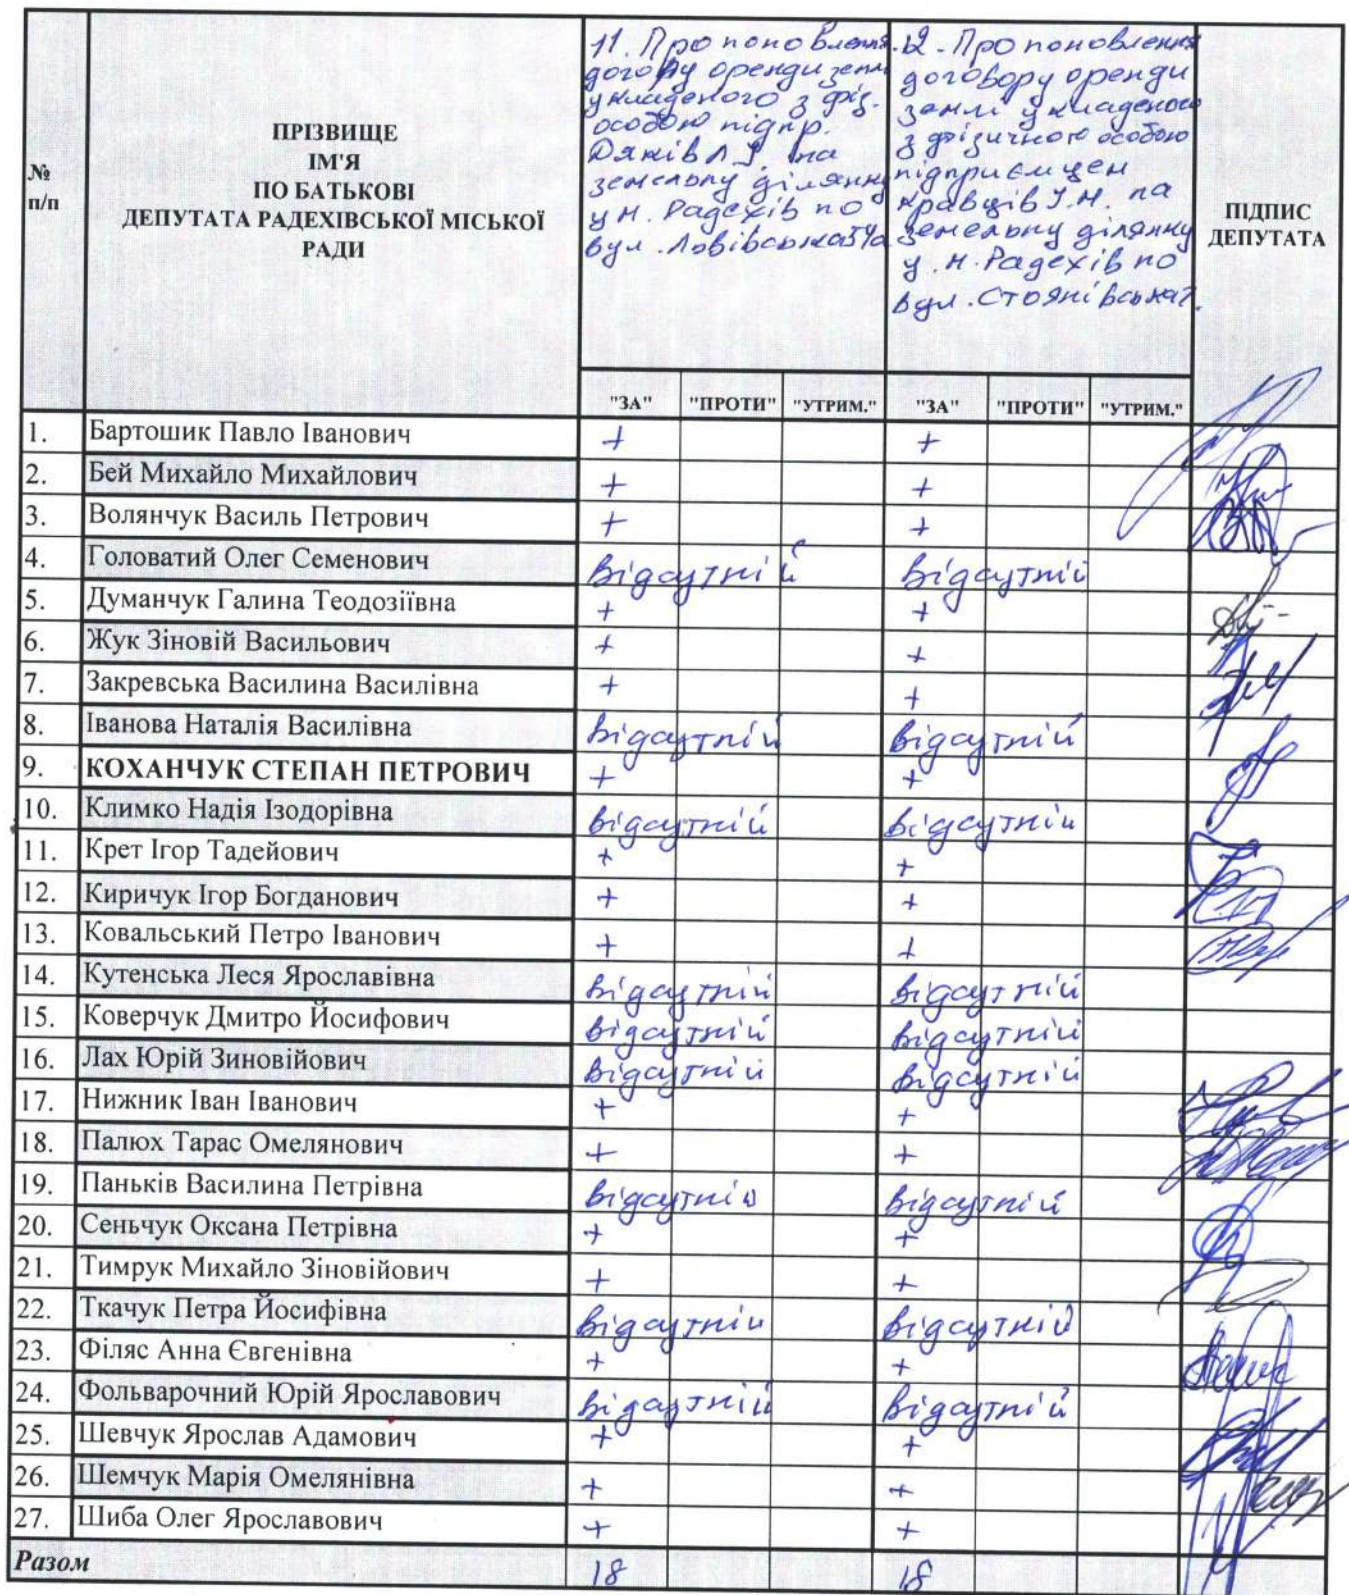 №
п/п
ПРІЗВИЩЕ
ІМ'Я
ПО БАТЬКОВІ
ДЕПУТАТА РАДЕХІВСЬКОЇ МІСЬКОЇ
РАДИ
11. Про поновлення
договору оренди землі
укладеного з фіз.
особою підпр.
Дяків Л.І. на
земельну ділянку
у м. Радехів по
вул. Львівська 54а
12. Про поновлення
договору оренди
землі укладеного
з фізичною особою
підприємцем
Кравців І.М. на
земельну ділянку
у м. Радехів по
вул. Стоянівська 7.
ПІДПИС
ДЕПУТАТА
"ЗА" "ПРОТИ" "УТРИМ." "ЗА" "ПРОТИ" "УТРИМ."
1. Бартошик Павло Іванович + +
2. Бей Михайло Михайлович + +
3. Волянчук Василь Петрович + +
4. Головатий Олег Семенович відсутній відсутній
5. Думанчук Галина Теодозіївна + +
6. Жук Зіновій Васильович + +
7. Закревська Василина Василівна + +
8. Іванова Наталія Василівна відсутній відсутній
9. КОХАНЧУК СТЕПАН ПЕТРОВИЧ + +
10. Климко Надія Ізодорівна відсутній відсутній
11. Крет Ігор Тадейович + +
12. Киричук Ігор Богданович + +
13. Ковальський Петро Іванович + +
14. Кутенська Леся Ярославівна відсутній відсутній
15. Коверчук Дмитро Йосифович відсутній відсутній
16. Лах Юрій Зиновійович відсутній відсутній
17. Нижник Іван Іванович + +
18. Палюх Тарас Омелянович + +
19. Паньків Василина Петрівна відсутній відсутній
20. Сеньчук Оксана Петрівна + +
21. Тимрук Михайло Зіновійович + +
22. Ткачук Петра Йосифівна відсутній відсутній
23. Філяс Анна Євгенівна + +
24. Фольварочний Юрій Ярославович відсутній відсутній
25. Шевчук Ярослав Адамович + +
26. Шемчук Марія Омелянівна + +
27. Шиба Олег Ярославович + +
Разом 18 18